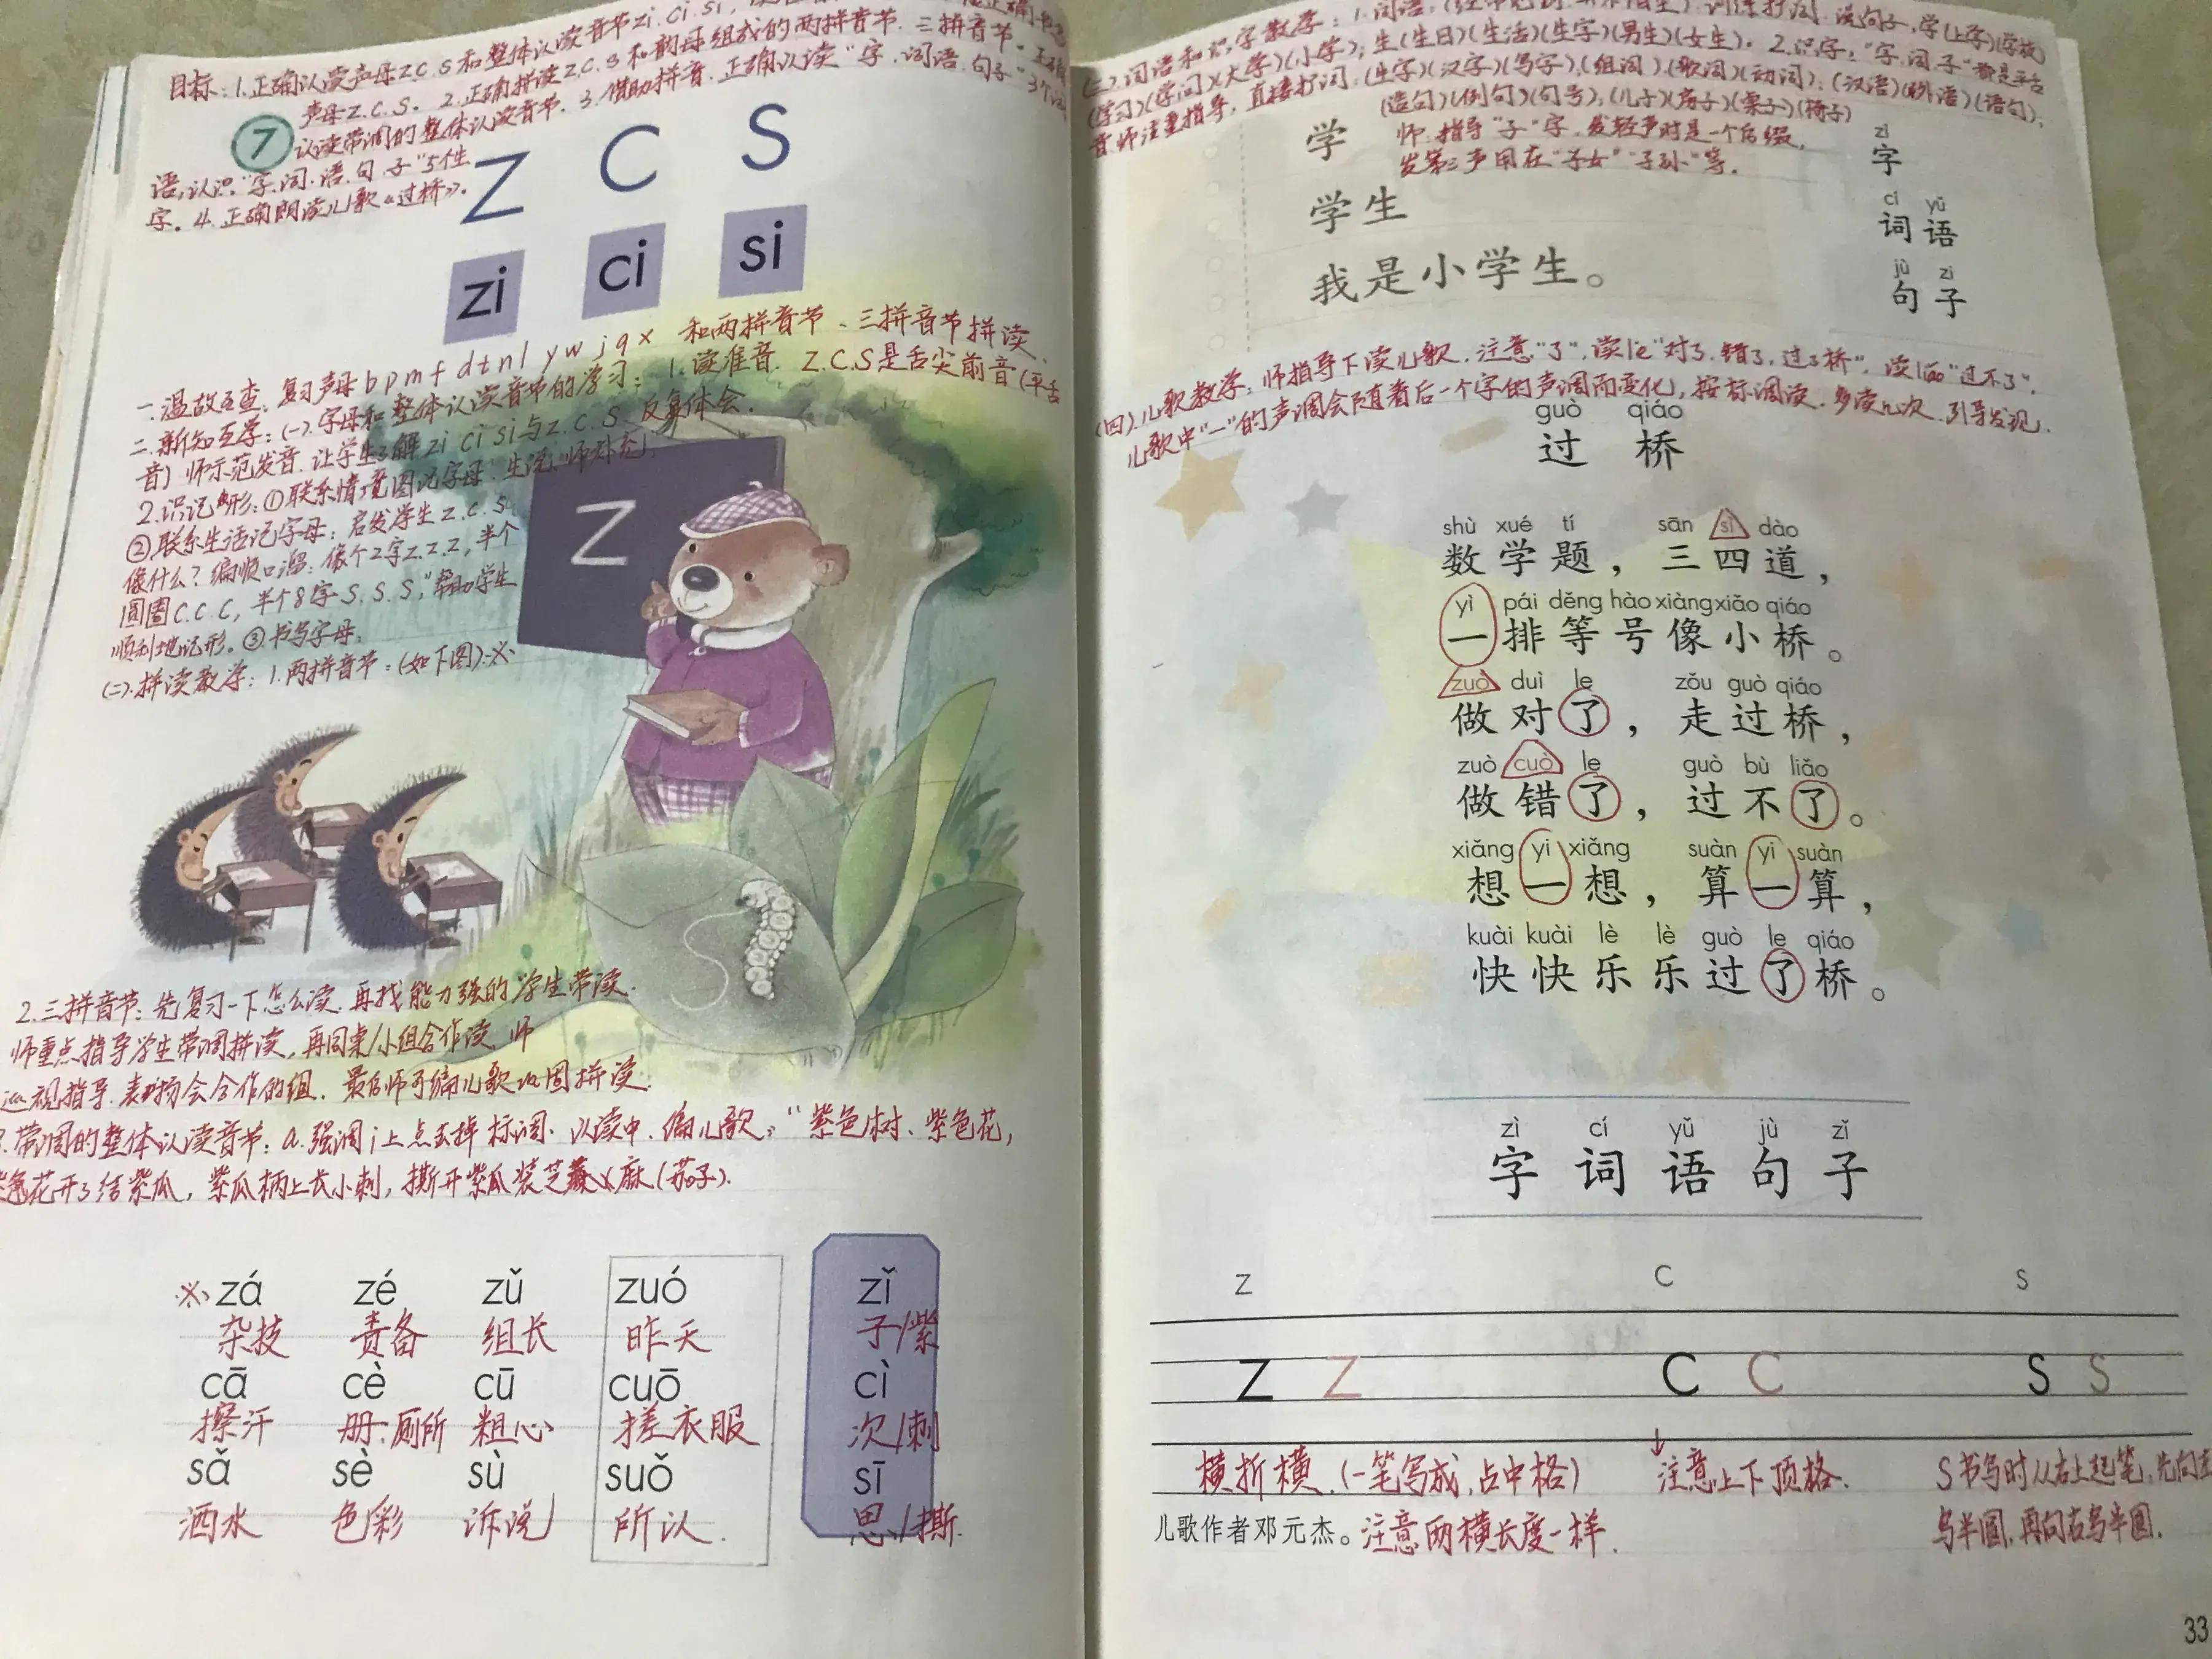 目标：1.正确认读声母z.c.s和整体认读音节zi.ci.si，
声母z.c.s。2.正确拼读z.c.s和韵母组成的两拼音节.三拼音节。正确
7
认读带调的整体认读音节.3.借助拼音.正确认读“字.词语.句子”3个词
语,认识“字.词.语.句.子”5个生
字。4.正确朗读儿歌《过桥》。
z c s
zi ci si
一.温故互查：复习声母b p m f d t n l y w j q x 和两拼音节、三拼音节拼读.
二.新知互学：(一).字母和整体认读音节的学习：1.读准音. z.c.s是舌尖前音(平舌
音)师示范发音.让学生了解zi ci si与z.c.s.
2.识记字形：①联系情境图记字母：生说.师补充；
②联系生活记字母：启发学生z.c.s
像什么?编顺口溜：像个2字z.z.z,半个
圆圈c.c.c,半个8字s.s.s,”帮助学生
顺利地记形。③书写字母.
(二).拼读教学：1.两拼音节：(如下图).※
z
2.三拼音节：先复习一下怎么读.再找能力强的学生带读.
师重点指导学生带调拼读,再同桌/小组合作读.师
巡视指导.表扬会合作的组.最后师可编儿歌巩固拼读.
3.带调的整体认读音节：a.强调i上点去掉标调.认读中.编儿歌：“紫色树、紫色花,
紫色花开了结紫瓜,紫瓜柄上长小刺,撕开紫瓜装芝麻(茄子).
※ zá zé zǔ zuó zǐ
杂技 责备 组长 昨天 子/紫
cā cè cū cuō cì
擦汗 册.厕所 粗心 搓衣服 次/刺
sǎ sè sù suǒ sī
洒水 色彩 诉说 所以. 思/撕.
(三).词语和识字教学：1.词语： 说句子,学(上学)(学校)
(学习)(学问)(大学)(小学)；生(生日)(生活)(生字)(男生)(女生)。2.识字：“字.词.子”都是平舌
音师注重指导,直接扩词：(生字)(汉字)(写字)；(组词)(歌词)(动词)；(汉语)(外语)(语句)；
(造句)(例句)(句号)；(儿子)(房子)(桌子)(椅子)
师.指导“子”字.发轻声时是一个后缀,
发第三声用在“子女”“子孙”等.
学
学生
我是小学生。
zì
字
cí yǔ
词语
jù zi
句子
(四).儿歌教学：师指导下读儿歌.注意“了”.读le“对了.错了.过了桥”.读liǎo“过不了”.
儿歌中“一”的声调会随着后一个字的声调而变化,按标调读.多读几次.引导发现.
guò qiáo
过桥
shù xué tí sān sì dào
数学题，三四道，
yì pái děng hào xiàng xiǎo qiáo
一排等号像小桥。
zuò duì le zǒu guò qiáo
做对了，走过桥，
zuò cuò le guò bù liǎo
做错了，过不了。
xiǎng yi xiǎng suàn yi suàn
想一想，算一算，
kuài kuài lè lè guò le qiáo
快快乐乐过了桥。
zì cí yǔ jù zǐ
字词语句子
z c s
z z c c s s
横折横.(一笔写成,占中格)
↓
注意上下顶格.
s书写时从右上起笔.先向左
写半圆,再向右写半圆.
儿歌作者邓元杰。注意两横长度一样.
33